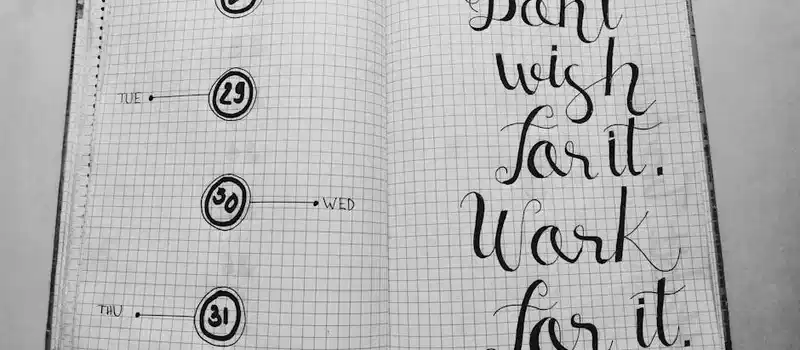 TUE 29
30 WED
THU 31
Dont
wish
for it.
Work
for it.